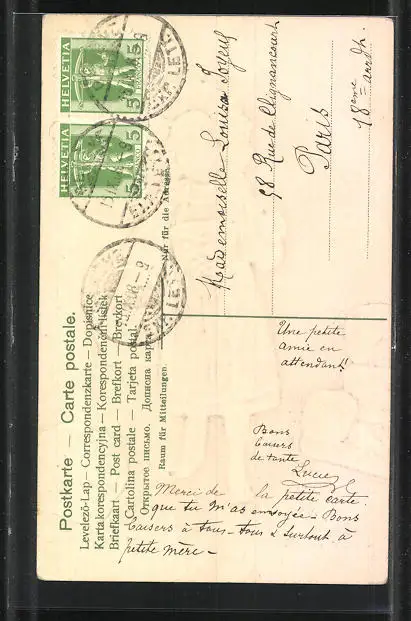 HELVETIA 5
HELVETIA 5
EXP. LET.
Postkarte — Carte postale.
Levelező-Lap — Correspondenzkarte — Dopisnice
Karta korespondencyjna — Korespondenční lístek
Briefkaart — Post card — Brefkort — Brevkort
Cartolina postale — Tarjeta postal.
Открытое письмо. Дописна карта
Raum für Mitteilungen.
Nur für die Adresse.
Mademoiselle Louisa Joyeux
98 Rue de Clignancourt
Paris
18ème arrdt.
Une petite
amie en
attendant!!
Bons
baisers
de tante
Lucie
Merci de la petite carte
que tu m'as envoyée – Bons
baisers à tous – tous & surtout à
petite mère –